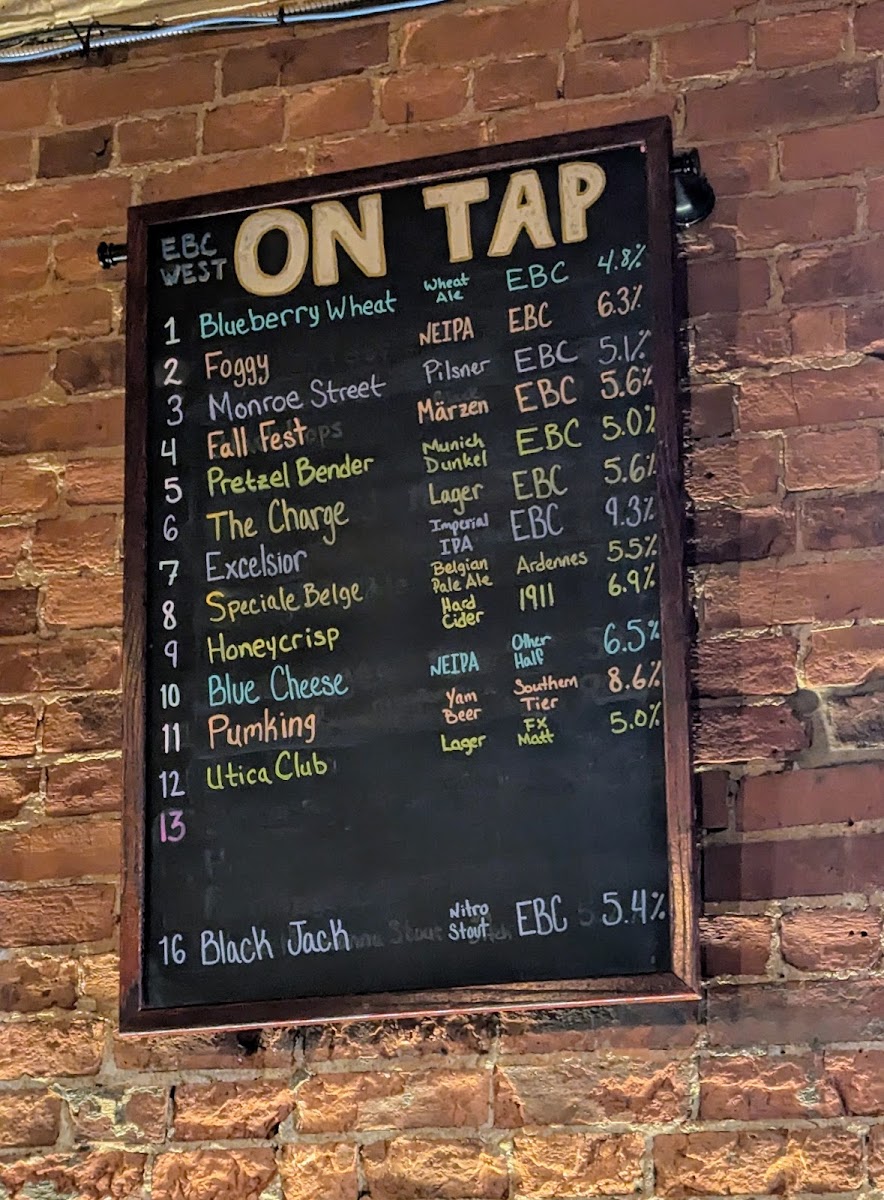 EBC WEST ON TAP
1 Blueberry Wheat Wheat Ale EBC 4.8%
2 Foggy NEIPA EBC 6.3%
3 Monroe Street Pilsner EBC 5.1%
4 Fall Fest Märzen EBC 5.6%
5 Pretzel Bender Munich Dunkel EBC 5.0%
6 The Charge Lager EBC 5.6%
7 Excelsior Imperial IPA EBC 9.3%
8 Speciale Belge Belgian Pale Ale Ardennes 5.5%
9 Honeycrisp Hard Cider 1911 6.9%
10 Blue Cheese NEIPA Other Half 6.5%
11 Pumking Yam Beer Southern Tier 8.6%
12 Utica Club Lager FX Matt 5.0%
13
16 Black Jack Nitro Stout EBC 5.4%